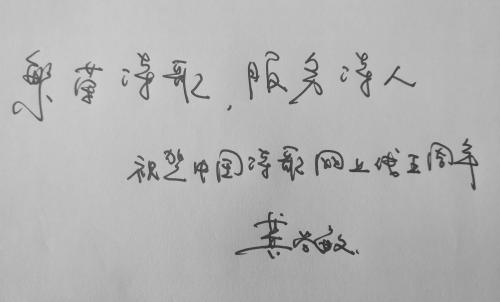 繁荣诗歌,服务诗人
祝贺中国诗歌网上线五周年
黄亚洲